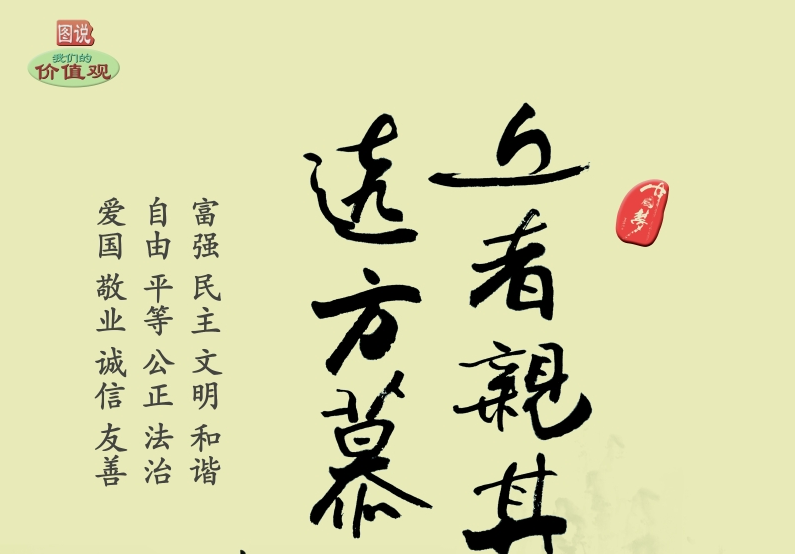 图说
我们的
价值观
中国梦
近者親其
遠方慕
富强 民主 文明 和谐
自由 平等 公正 法治
爱国 敬业 诚信 友善